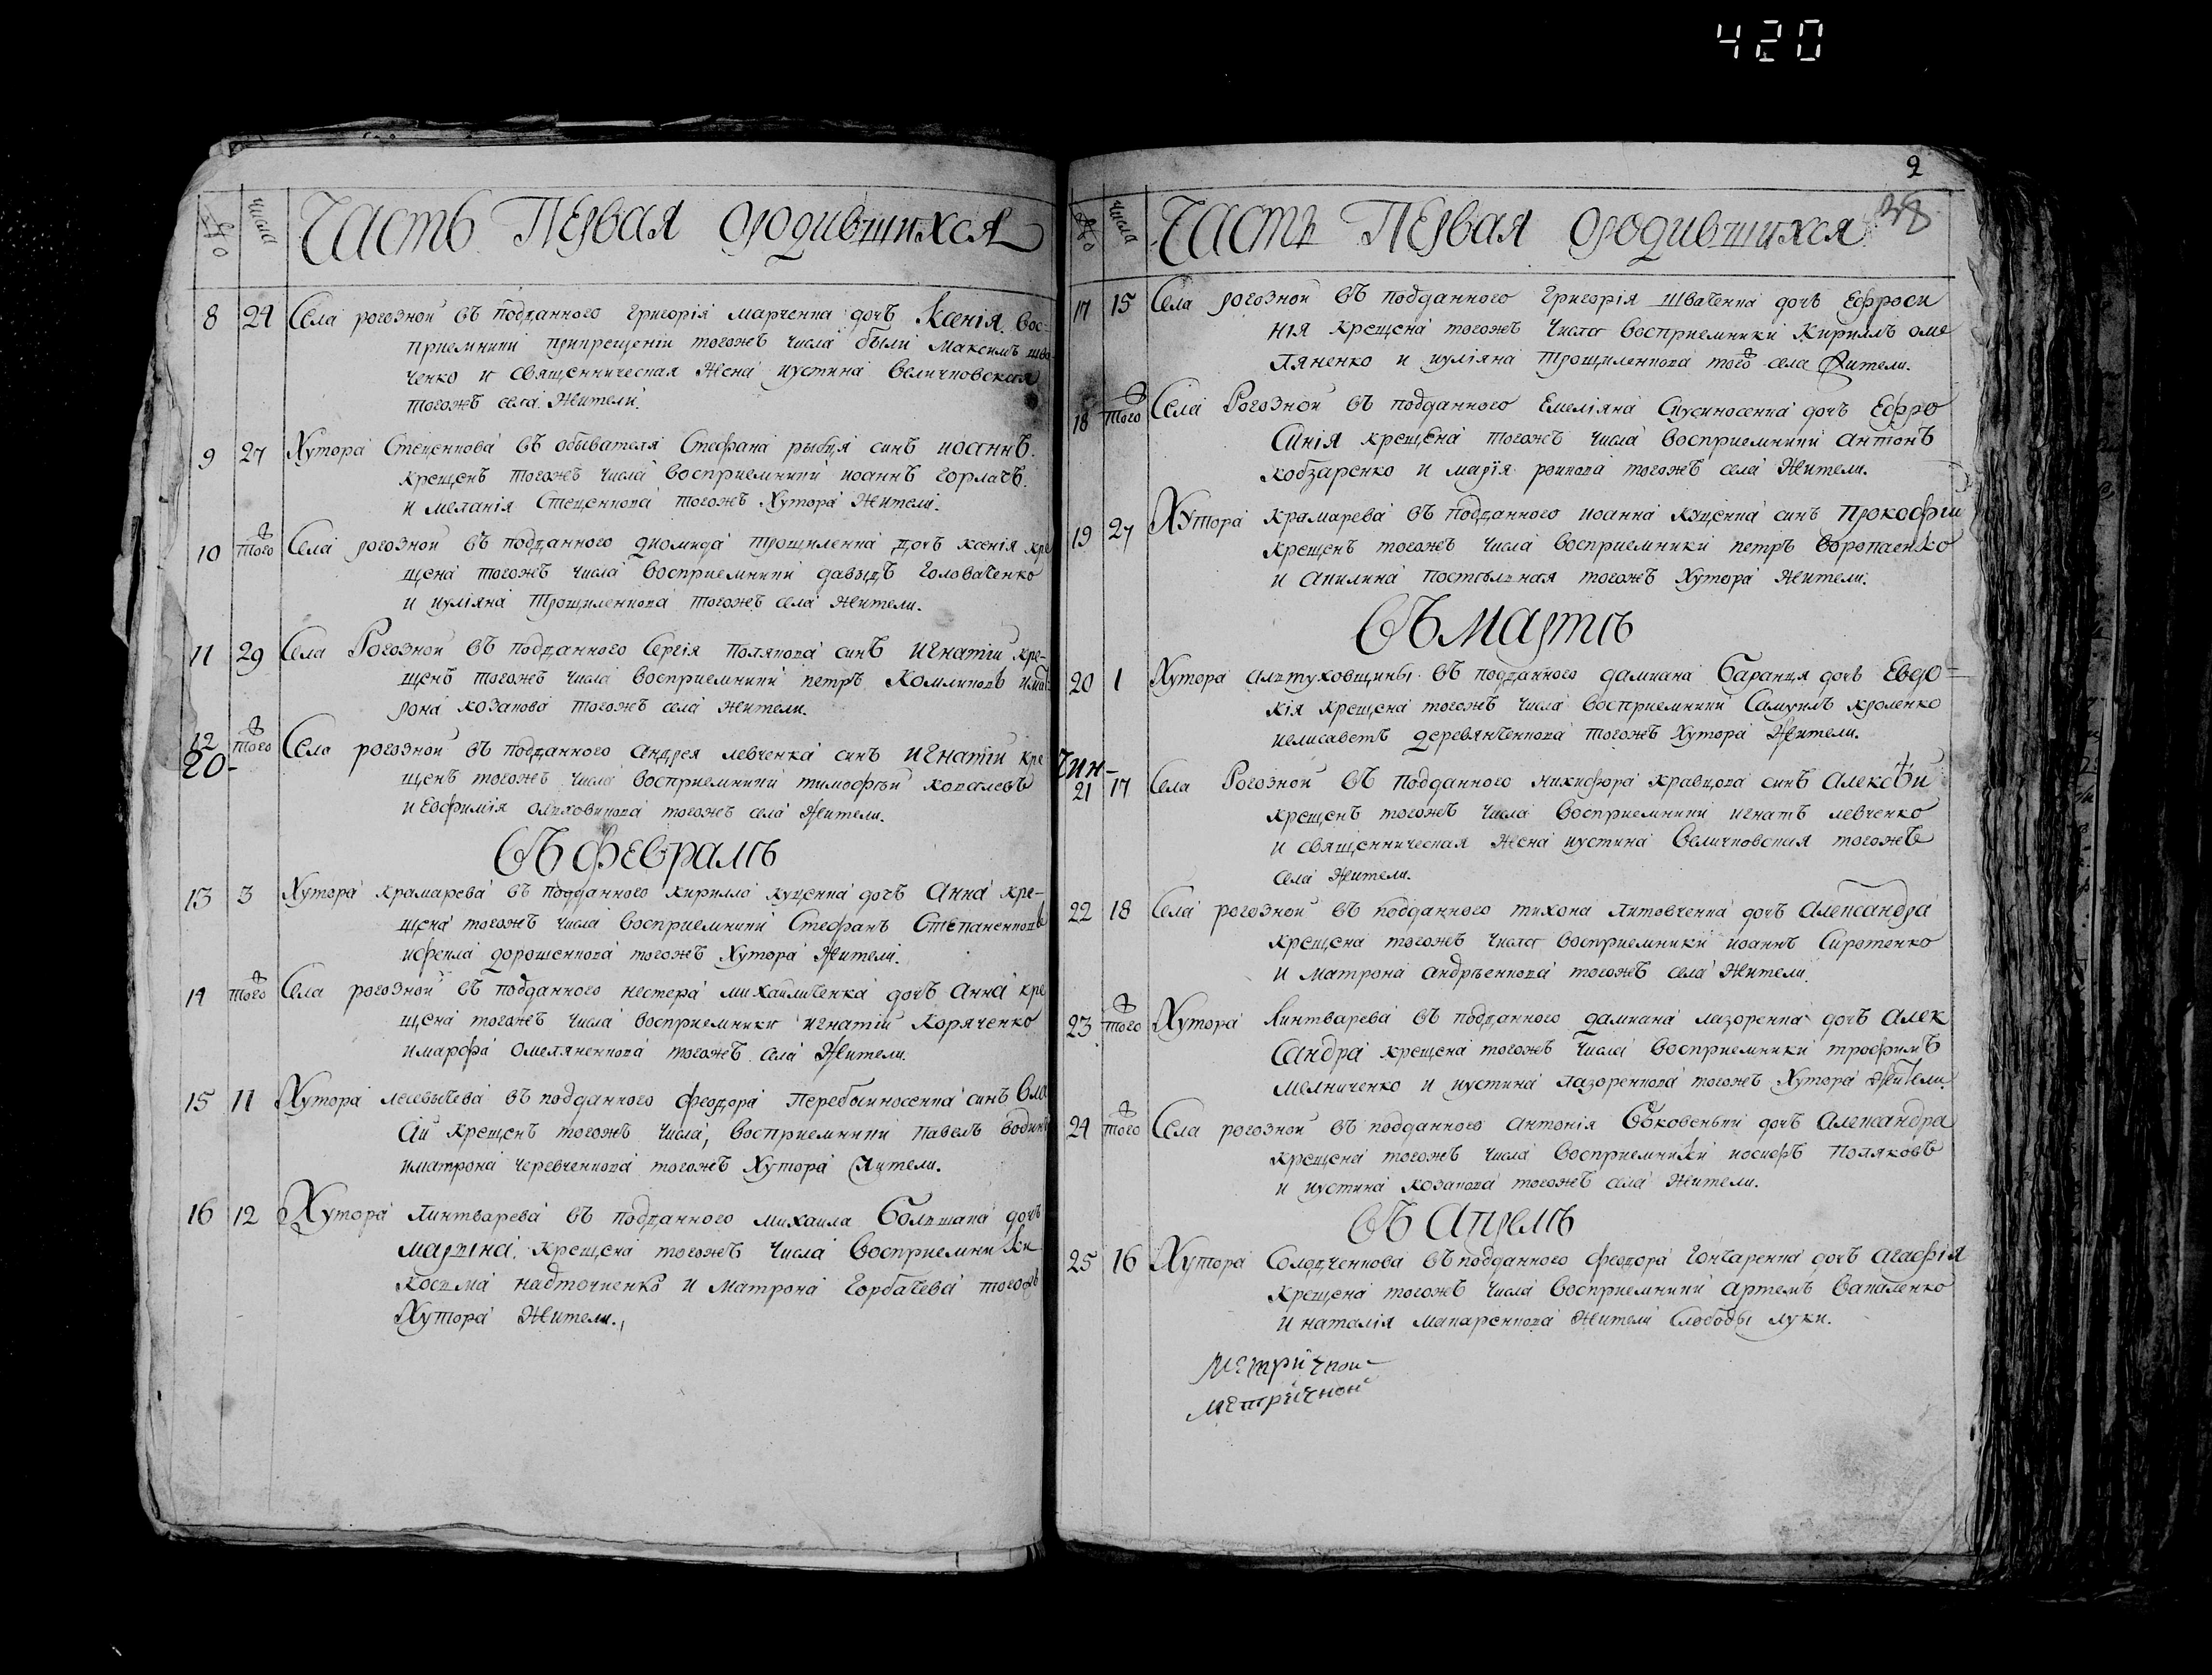 420
№ числа Часть Первая ородившихся
8 24 Села рогозной въ подданного григорія марченка дочъ Ксенія. Вос-
приемники прикрещеніи тогожъ числа были Максимъ шва
ченко и священническая жена иустина Величковская
тогожъ села жители.
9 27 Хутора Стеценкова въ обывателя Стефана рыбця синъ иоаннъ.
крещенъ тогожъ числа восприемники иоаннъ горлачъ.
и меланія Стеценкова тогожъ хутора жители.
10 тогож Села рогозной въ подданного диомида трощиленка дочъ ксенія кре
щена тогожъ числа восприемники давыдъ Головаченко
и иуліяна Трощиленкова тогожъ села жители.
11 29 Села Рогозной въ подданного Сергія Полякова синъ игнатій кре-
щенъ тогожъ числа восприемники петръ Комликовъ имат
рона козакова тогожъ села жители.
12 тогож Села рогозной въ подданного андрея левченка синъ игнатій кре
20-
щенъ тогожъ числа восприемники тимофѣй ковалевъ
и Евфимія олховикова тогожъ села жители.
Въ февралѣ
13 3 Хутора крамарева въ подданного кирилла куценка дочъ Анна кре-
щена тогожъ числа восприемники Стефанъ Степаненковъ
ифекла дорошенкова тогожъ хутора жители.
14 тогож Села рогозной въ подданного нестера михайличенка дочъ анна кре
щена тогожъ числа восприемники игнатій Коряченко
имарфа омеляненкова тогожъ села жители.
15 11 Хутора лесевычева въ подданного феодора Перебыиносенка синъ Вла
сій крещенъ тогожъ числа, восприемники павелъ
иматрона черевченкова тогожъ хутора жители.
16 12 Хутора Линтварева въ подданного михаила Болшака дочъ
Марѣна. крещена тогожъ числа восприемники
косма надточиенко и матрона Горбачева тогожъ
хутора жители.,
2
38
№ числа Часть Первая ородившихся
17 15 Села рогозной въ подданного григорія шваченка дочъ Ефроси
нія крещена тогожъ числа восприемники Кириллъ оме
ляненко и иуліяна трощиленкова тогож села жители.
18 тогож Села Рогозной въ подданного Емеліяна дочъ Ефро
синія крещена тогожъ числа восприемники антонъ
кобзаренко и марія тогожъ села жители.
19 27 Хутора крамарева въ подданного иоанна куценка синъ Прокофій
крещенъ тогожъ числа восприемники петръ воропаенко
и Акилина Постолная тогожъ хутора жители.
Въ Мартѣ
20 1 Хутора алтуховщины въ подданного дамиана Баранця дочъ Евдо=
кія крещена тогожъ числа восприемники Самуилъ кроленко
иелисаветъ деревянченкова тогожъ хутора жители.
Чин-
21 17 Села Рогозной въ подданного никифора кравцова синъ алексѣй
крещенъ тогожъ числа восприемники игнатъ левченко
и священническая жена иустина Величковская тогожъ
села жители.
22 18 Села рогозной въ подданного тихона литовченка дочъ александра
крещена тогожъ числа восприемники иоаннъ Сиротенко
и матрона андрѣенкова тогожъ села жители.
23 тогож Хутора Линтварева въ подданного дамиана лазоренка дочъ алек
сандра крещена тогожъ числа восприемники трофимъ
мелниченко и иустина лазоренкова тогожъ хутора жители.
24 тогож Села рогозной въ подданного антонія Боковенки дочъ александра
крещена тогожъ числа восприемники иосифъ поляковъ
и иустина козакова тогожъ села жители.
Въ Апрелѣ
25 16 Хутора Солодченкова въ подданного феодора гончаренка дочъ агафія
крещена тогожъ числа восприемники артемъ Вакаленко
и наталія макаренкова жители Слободы луки.
Метричной
метричной